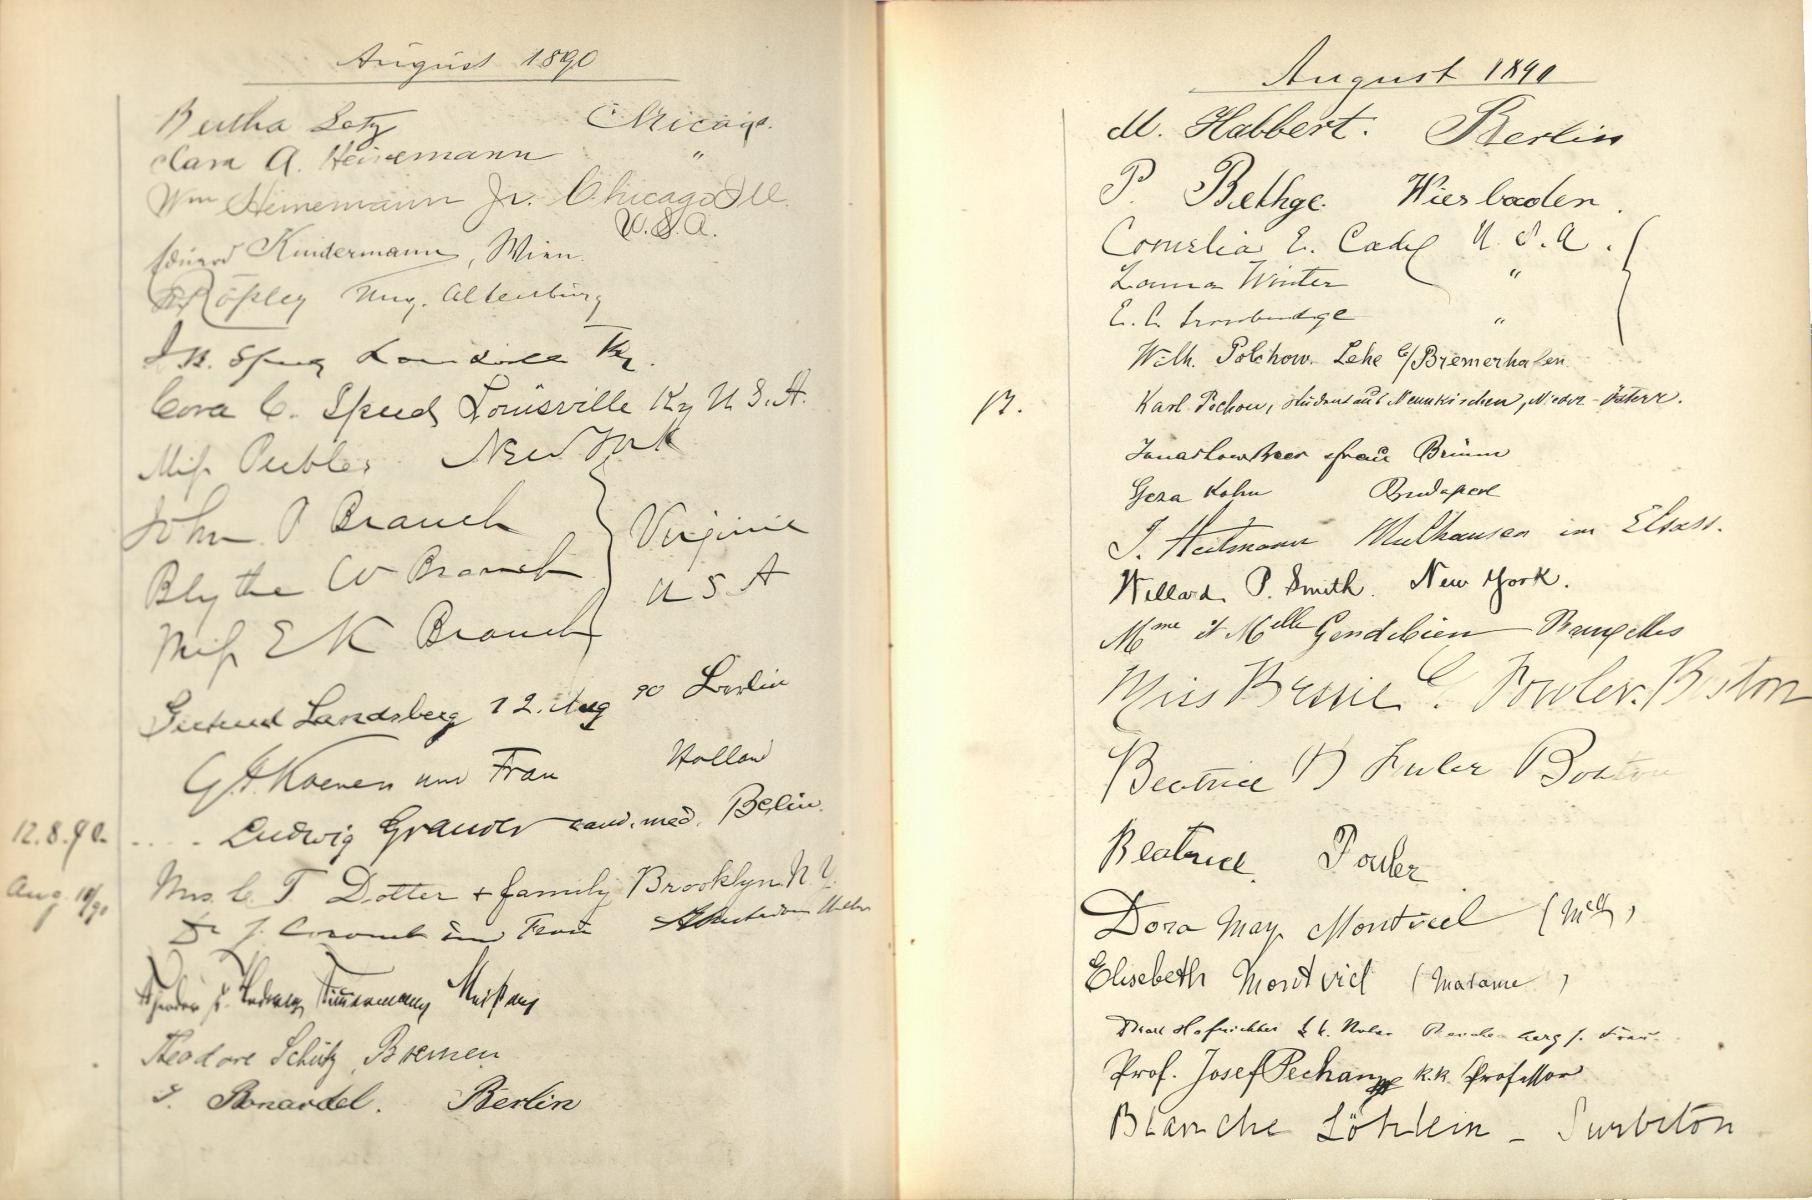 August 1890
Bertha Lotz Chicago.
Clara A. Heinemann "
Wm Heinemann Jr. Chicago Ill.
U.S.A.
Eduard Kindermann, Wien.
Ung. Altenburg
J. B. Speed Louisville Ky.
Cora C. Speed Louisville Ky U.S.A.
Miss Peebles New York
John P Branch
Virginia
Blythe W Branch
U S A
Miss E K Branch
Gertrud Landsberg 12. Aug 90 Berlin
Koenen und Frau Holland
12.8.90 .... Ludwig cand. med. Berlin.
Aug 12/90 Mrs. C. T Dotter + family Brooklyn N.Y.
Dr J. und Frau Amsterdam
Theodore Schütz, Bremen.
Bonardel. Berlin
August 1890
M. Habbert. Berlin
P. Bethge. Wiesbaden.
Cornelia E. Cady U.S.A.
Winter "
E. C. "
Wilh. Polchow. Lehe b/Bremerhafen
12. Karl student aus Neunkirchen, Nieder-Österr.
Frau Brünn
Geza Kohn Budapest
J. Heilmann Mulhausen im Elsass.
Willard P. Smith. New York.
Mme et Melle Gendebien Bruxelles
Miss Bessie G. Fowler. Boston
Beatrice Fowler Boston
Beatrice Fowler
Dora May Montviel (Mell)
Elisebeth Montviel (Madame)
Hofrichter k. k. Notar s. Frau.
Prof. Josef Pechan k.k. Professor
Blanche Löhlein - Surbiton